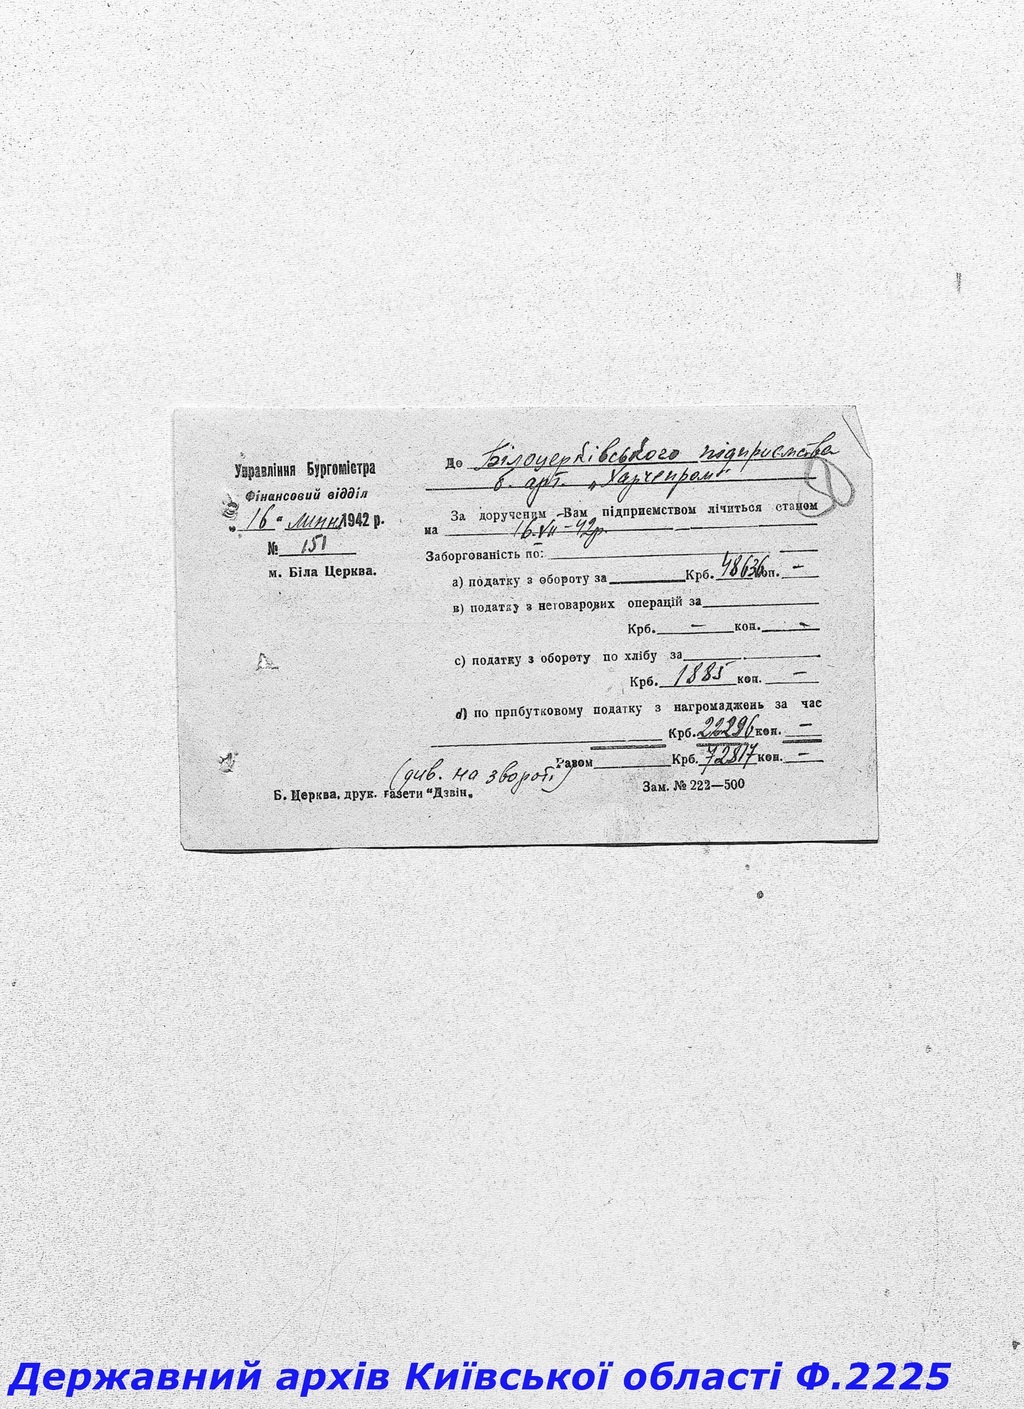 Управління Бургомістра
Фінансовий відділ
"16" липня 1942 р.
№ 151
м. Біла Церква.
До Білоцерківського підприємства
б. арт. „Харчепром"
За дорученим Вам підприємством лічиться станом
на 16.VII-42р.
Заборгованість по:
а) податку з обороту за Крб. 48636 коп. —
в) податку з нетоварових операцій за
Крб. — коп. —
с) податку з обороту по хлібу за
Крб. 1885 коп. —
d) по прибутковому податку з нагромаджень за час
Крб. 22296 коп. —
Разом Крб. 72817 коп. —
(див. на звороті)
Б. Церква, друк. газети "Дзвін„
Зам. № 222—500
Державний архів Київської області Ф.2225